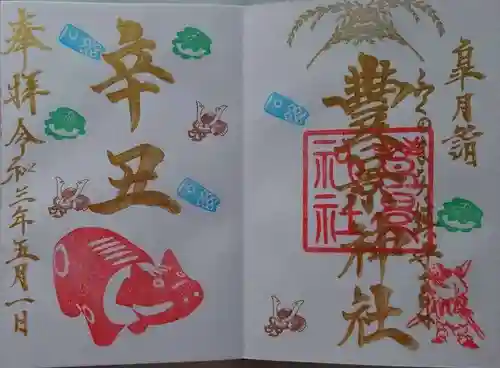 皐月詣
豊景神社
豊景神社
辛丑
奉拝 令和三年五月一日